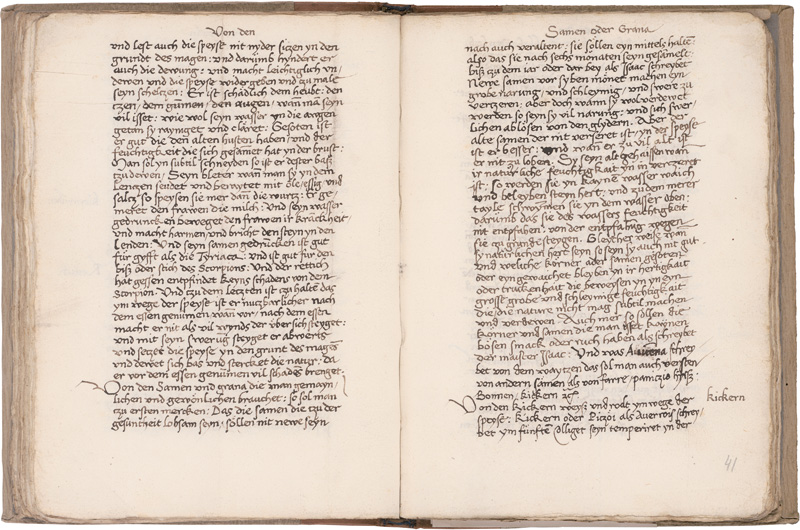 Von den
vnd lest auch die speyse nit nyder sitzen yn den
grundt des magen: vnd darumb hyndert er
auch die dewung: vnd macht leichtiglich vn/
dewen vnd die speyse widergeben vnd tzu male
seyn schelczen: Er ist schadlich dem heubt: den
czen / dem gummen / den augen / wann man seyn
vil isset: wie wol seyn wasser yn die augen
getan sy raymget vnd claret: Gesoten ist
er gut die den alten husten haben / vnd der
feuchtigkeit die sich gesamet hat yn der brust:
Man sol yn subtil schneyden so ist er dester bass
tzudewen: Seyn bleter wan man sy yn dem
Lenczen seudet vnd bereytet mit ole / essig vnd
saltz / so speysen sie mer dan die wurtz: Er ge/
meret den frawen die milch: Vnd seyn wasser
gedruncken beweget den frawen ir kranckheit /
vnd macht harmen vnd bricht den steyn yn den
Lenden: Vnd seyn samen gedrucken ist gut
fur gyfft als die Tyriaca: vnd ist gut fur den
biss oder stich des Scorpions: Vnd der rettich
hat gessen entpfindt keyns schadens von dem
Scorpion: Vnd tzu dem leczten ist tzu halten das
ym wege der speyse ist er nuczbarlicher nach
dem essen genumen wan vor / nach dem essen
macht er nit als vil wynds der vbersich steyget:
vnd mit seyn swerung steyget er abwerts
vnd setzet die speyse yn den grunt des magens
vnd dewet sich bas vnd stercket die natur: da
er vor dem essen genumen vil schadens brenget.
Von den Samen vnd grana die man gemayn/
lichen vnd gewonlichen brauchet: so sol man
tzu ersten mercken: Das die samen die tzu der
gesuntheit lobsam seyn / sollen nit newe seyn
Samen oder Grana
nach auch veraltent: sie sollen eyn mittels halten
also das sie nach sechs monaten seyn gesamelt
bisz tzu dem iar oder dar bey als Isaac schreybet
Newe samen vor syben monet machen eyn
grobe narung / vnd schleymig / vnd swere tzu
vertzeren: aber doch wann sy wol verdewet
werden so seyn sy vil narung: vnd sich swer/
lichen ablosen von den glydern. Aber der
alte samen der nit verseret ist / yn der speyse
ist er besser: Vnd wan er zu vil alt ist
er nit zu loben. Sy seyn alt geheissen wan
ir naturliche feuchtigkait yn in vertzeret
ist: so werden sie yn kayne wasser waich
vnd beleyben steyn hert: vnd zu dem merer
tayle schwymen sie yn dem wasser oben:
darumb das sie des wassers feuchtigkeit
nit entpfahen: von der entpfahung wegen
sie zu grunde steygen. Gleycher weise wan
sy naturlichen hert seyn so seyn sy auch nit gut.
Vnd weliche korner oder samen gesoten
oder eyngewaichet bleyben yn ir hertigkait
oder truckenhait die beweysen yn yn eyn
grosse grobe vnd schleymige feuchtigkait
die die nature nicht mag subtil machen
vnd verdewen. Auch mer so sollen die
korner vnd samen die man isset keinen
bosen smack oder ruch haben als schreybet
der maister Isaac: Vnd was Auicenna schrey
bet von dem waytzen das sol man auch versten
von andern samen als von farre / panicio hirsz.
Bonnen / kickern zc.
Von den Kickern weysz vnd rodt yn wege der
speyse. Kickern oder Ciczoi als Auerrois schrey/
bet ym funften colliget seyn temperiret yn der
kickern
41